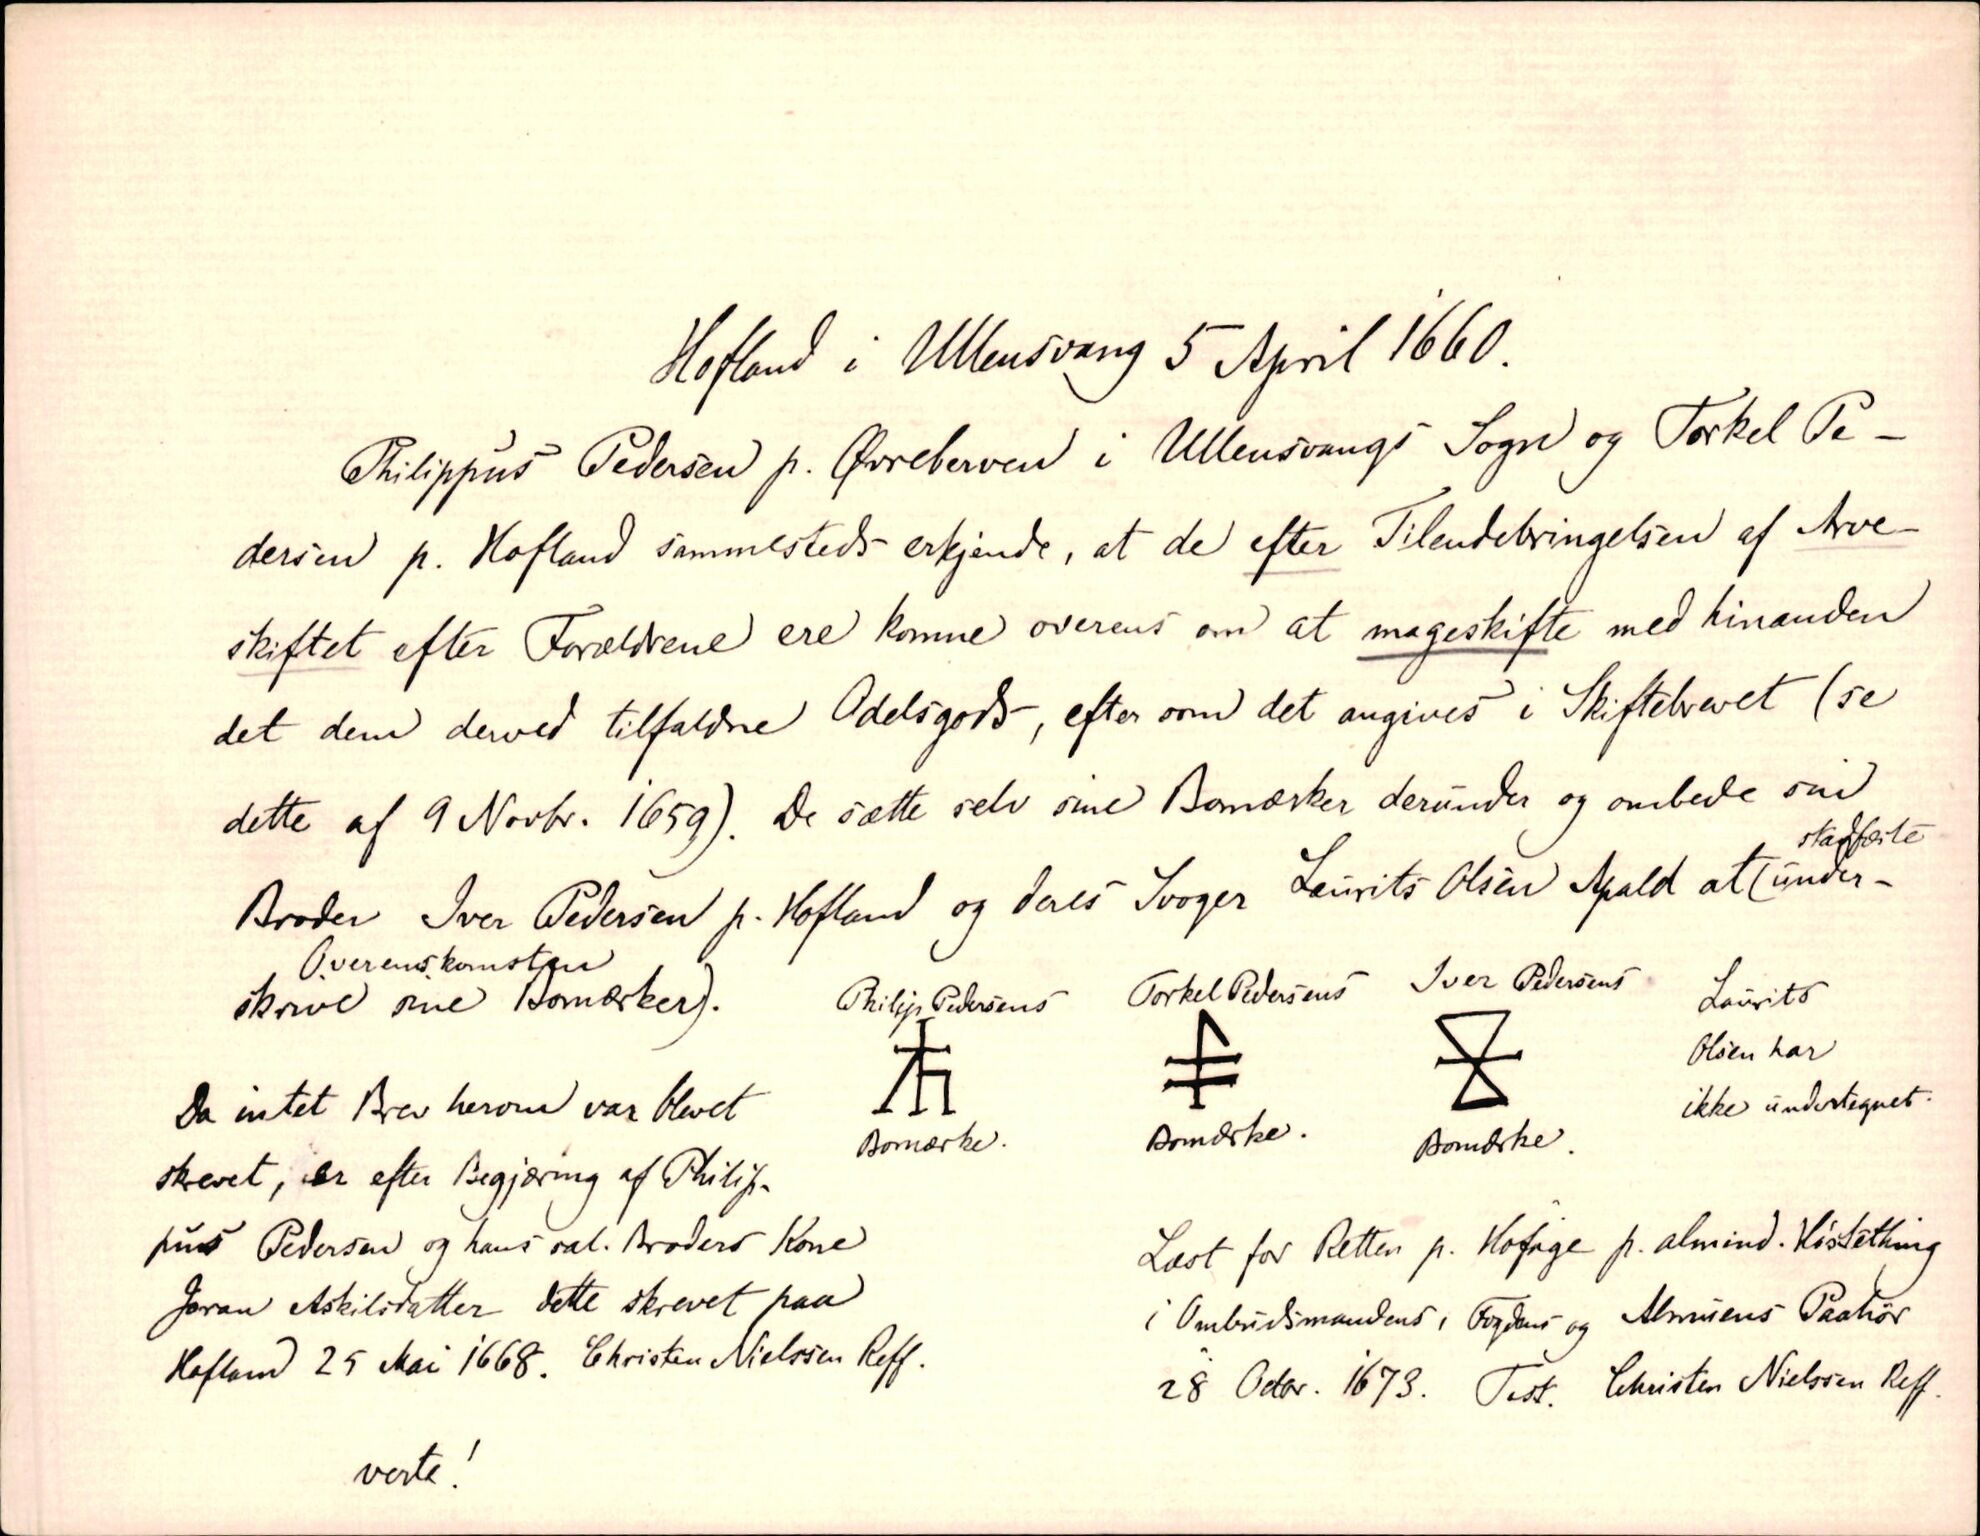 Hofland i Ullensvang 5 April 1660.
Philippus Pedersen p. Øvreberven i Ullensvangs Sogn og Torkel Pe-
dersen p. Hofland sammesteds erkjende, at de efter Tilendebringelsen af Arve-
skiftet efter Forældrene ere komne overens om at mageskifte med hinanden
det dem derved tilfaldne Odelsgods, efter som det angives i Skiftebrevet (se
dette af 9 Novbr. 1659). De sætte selv sine Bomærker derunder og ombede sin
stadfæste
Broder Iver Pedersen p. Hofland og deres Svoger Laurits Olsen Apald at (under-
Overenskomsten
skrive sine Bomærker).
Philip Pedersens
Bomærke.
Torkel Pedersens
Bomærke.
Iver Pedersens
Bomærke.
Laurits
Olsen har
ikke undertegnet.
Da intet Brev herom var blevet
skrevet, er efter Begjæring af Philip-
pus Pedersen og hans sal. Broders Kone
Joran Askilsdatter dette skrevet paa
Hofland 25 Mai 1668. Christen Nielssen Reff.
Læst for Retten p. Helge p. almind. Høstething
i Ombudsmandens, Fogdens og Almuens Paahør
28 Octbr. 1673. Test. Christen Nielssen Reff.
verte!